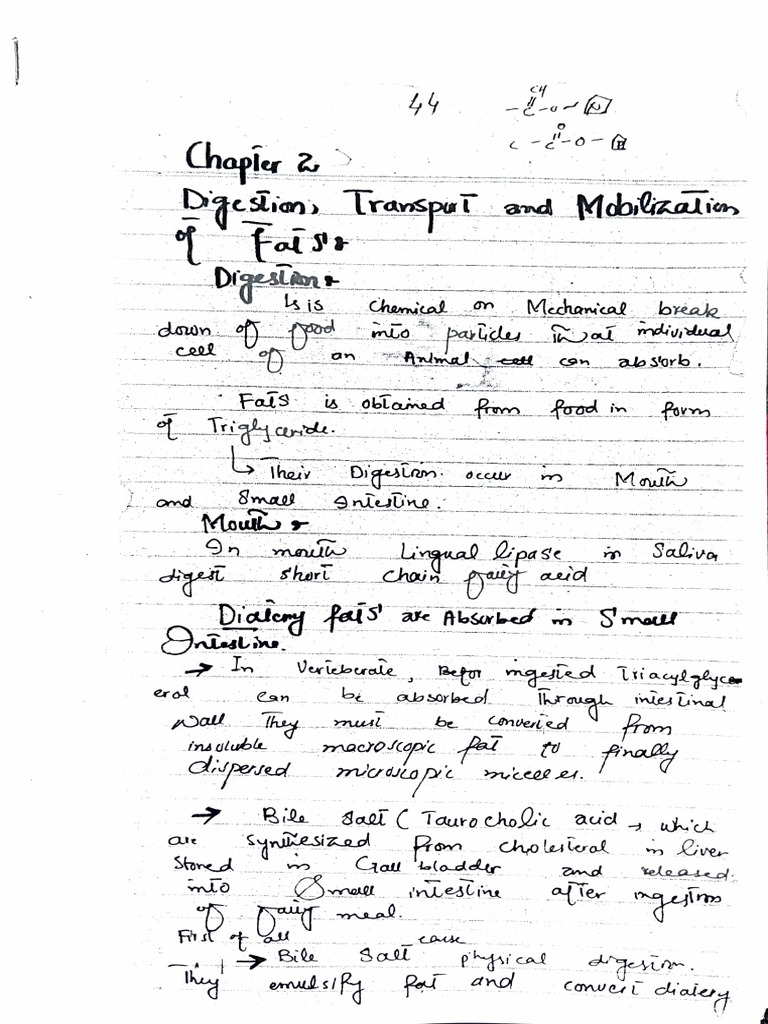 44
Chapter 2
Digestion, Transport and Mobilization
of Fats:
Digestion:
Is is chemical on Mechanical break
down of food into particles that individual
cell of an Animal cell can absorb.
Fats is obtained from food in form
of Triglyceride.
↳ Their Digestion occur in Mouth
and Small Intestine.
Mouth:
In mouth Lingual lipase in Saliva
digest short chain fatty acid
Dietery fats are Absorbed in Small
Intestine.
→ In Verteberate, Befor ingested Triacylglyc
erol can be absorbed Through intestinal
wall They must be converted from
insoluble macroscopic fat to finally
dispersed microscopic micelles.
→ Bile Salt (Taurocholic acid → which
are synthesized from cholesteral in liver
Stored in Gall bladder and released
into Small intestine after ingestion
of fatty meal.
First of all cause
→ Bile Salt physical digestion.
They emulsify fat and convert dietery